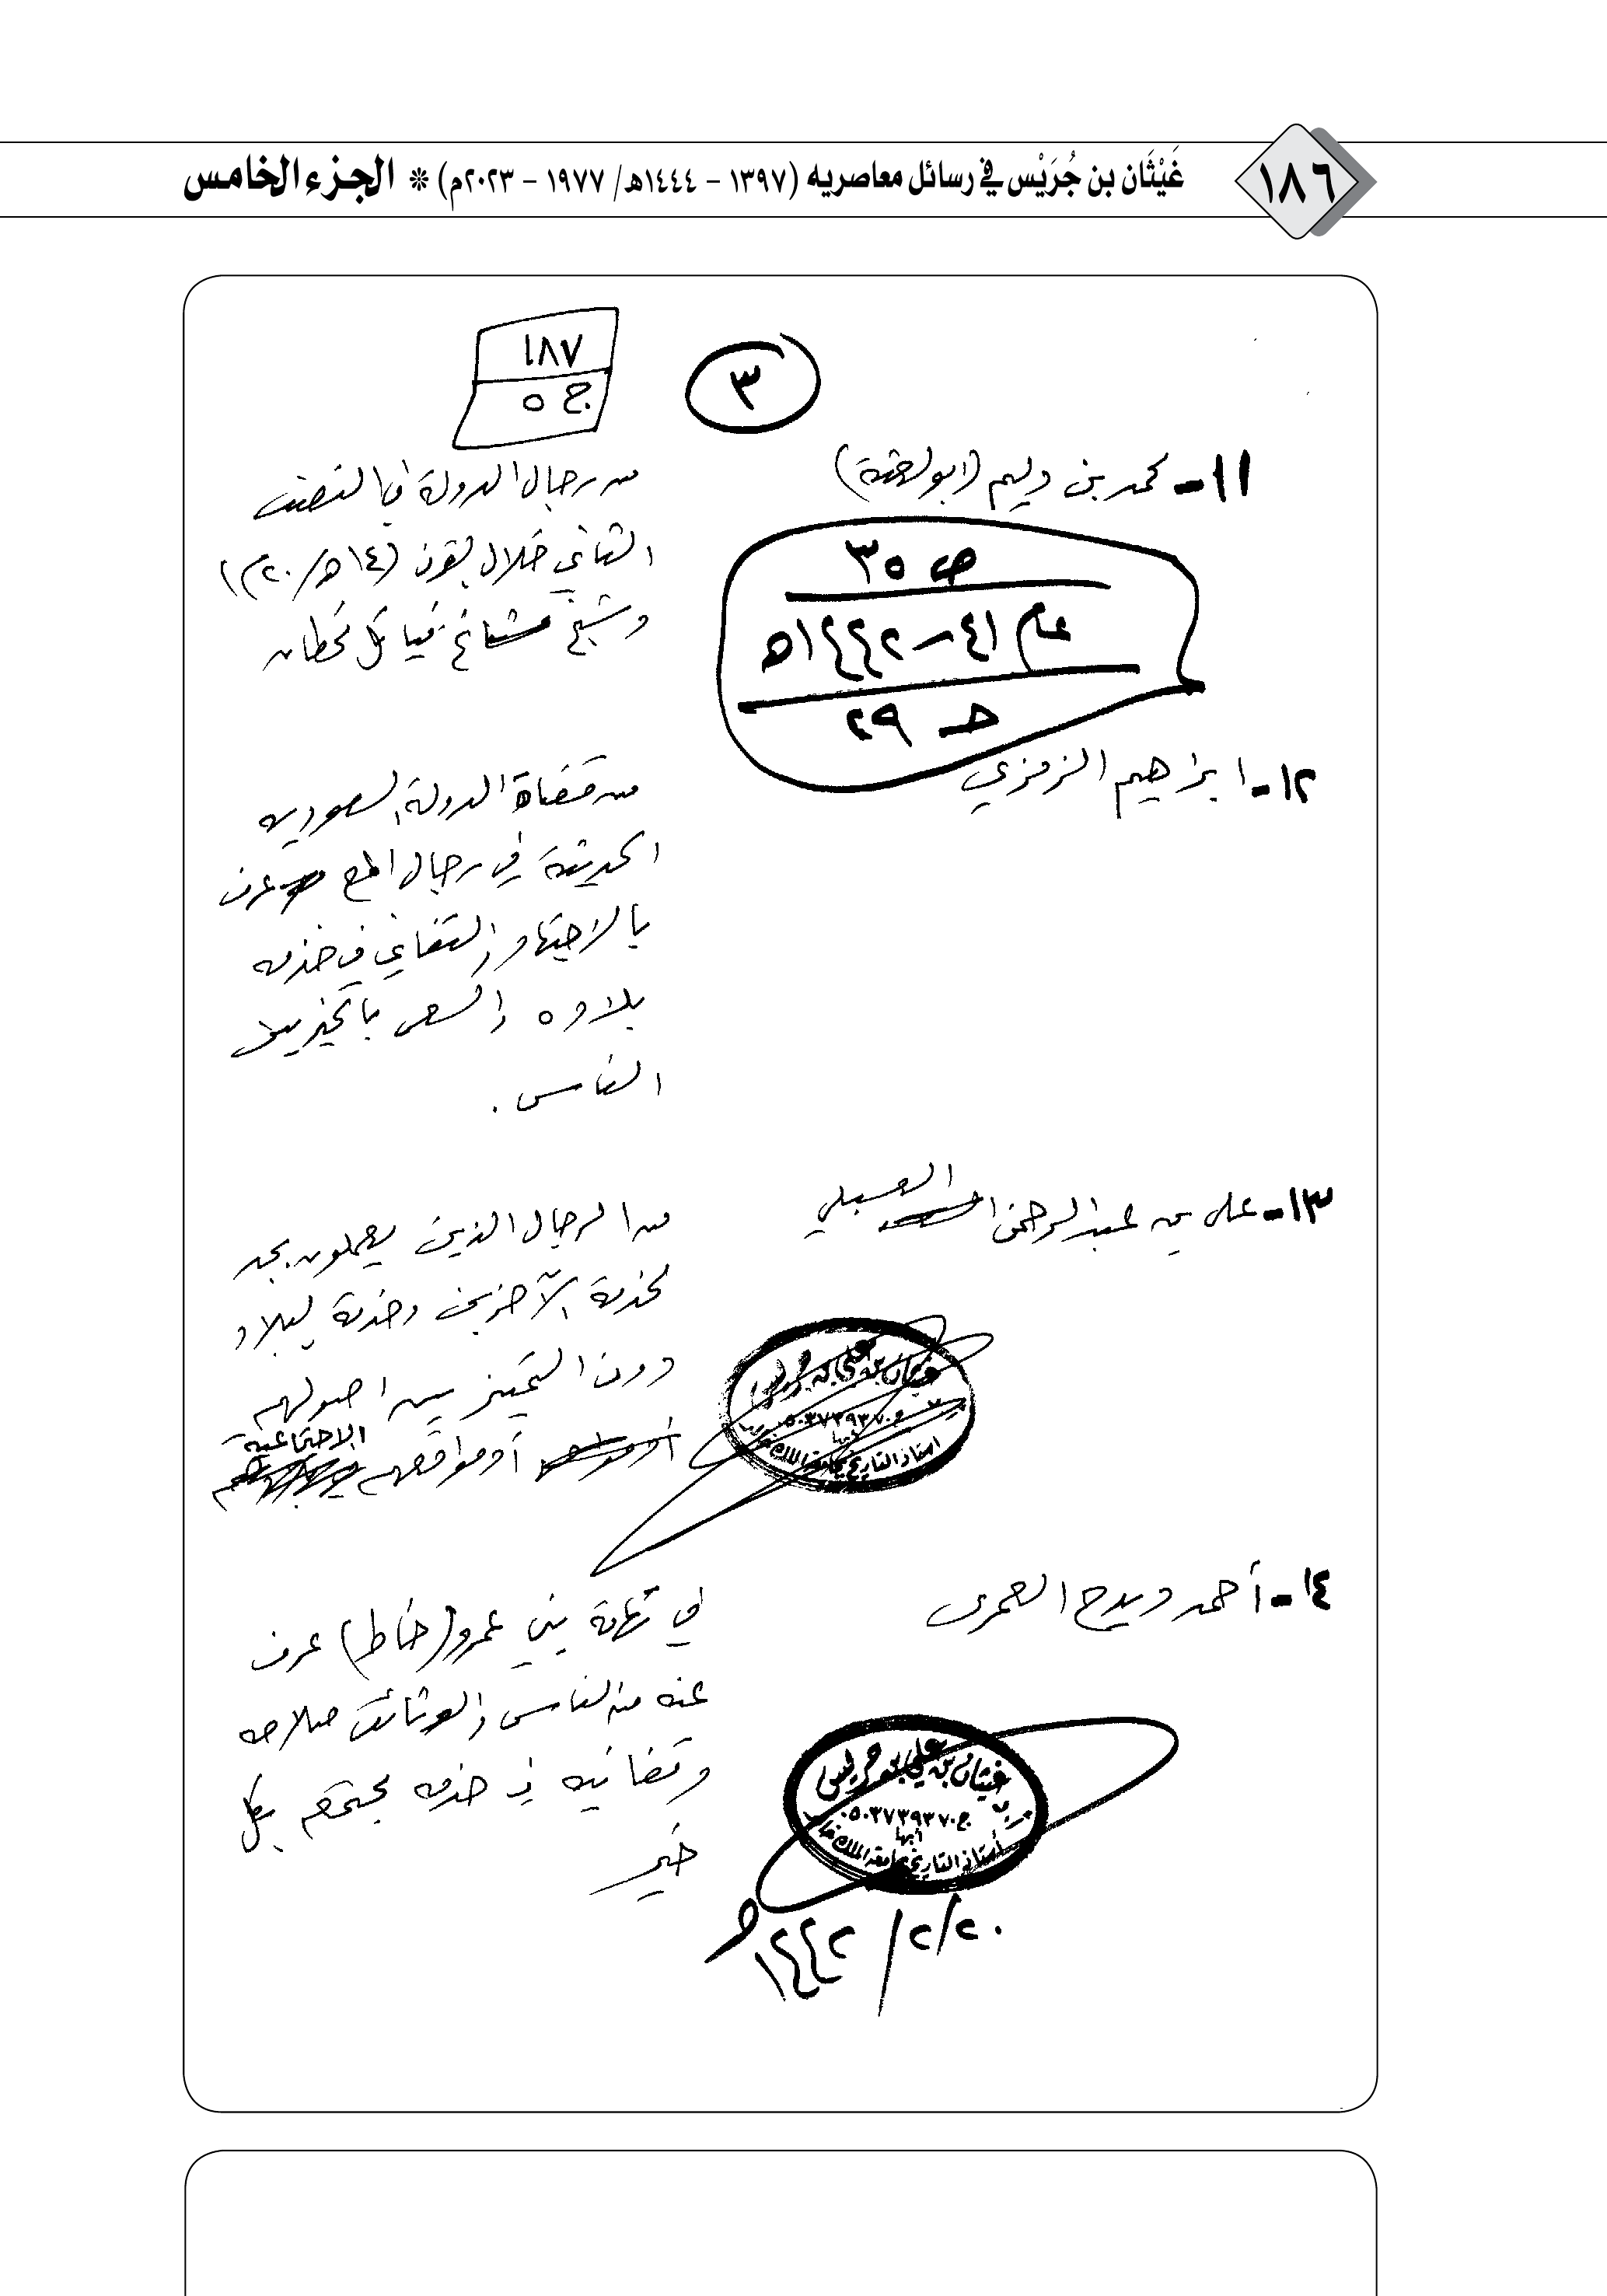 ١٨٦
غَيْثَان بن جُرَيْس في رسائل معاصريه (١٣٩٧ - ١٤٤٤هـ/ ١٩٧٧ - ٢٠٢٣م) * الجزء الخامس
١٨٧
ج ٥
٣
١١- محمد بن دليم (ابو لعثة)
من رجال الدولة في النصف
الثاني خلال القرن (١٤هـ/٢٠م)
وشيخ مشائخ قبائل قحطان
ص ٣٥
عام ٤١ - ١٤٤٢هـ
حـ ٢٩
١٢- ابراهيم الزمزمي
من قضاة الدولة السعودية
الحديثة في رجال المع عرف
بالاجتهاد والتفاني في خدمة
بلاده والسعي بالخير بين
الناس .
١٣- علي بن عبدالرحمن العسبلي
من الرجال الذين يعملون بجد
لخدمة الآخرين وخدمة البلاد
دون التمييز بين اصولهم
أو مواقعهم الاجتماعية
غيثان بن علي بن جريس
ج ٠٥٠٣٧٣٩٣٧٠
أبها
استاذ التاريخ بجامعة الملك خالد
١٤- أحمد ويدح العمري
في تهامة بني عمرو (خاط) عرف
عنه من الناس والوثائق صلاحه
وتفانيه في خدمة مجتمعه بكل
خير
غيثان بن علي بن جريس
ج ٠٥٠٣٧٣٩٣٧٠
أبها
أستاذ التاريخ بجامعة الملك خالد
٢٠/٢/١٤٤٢هـ